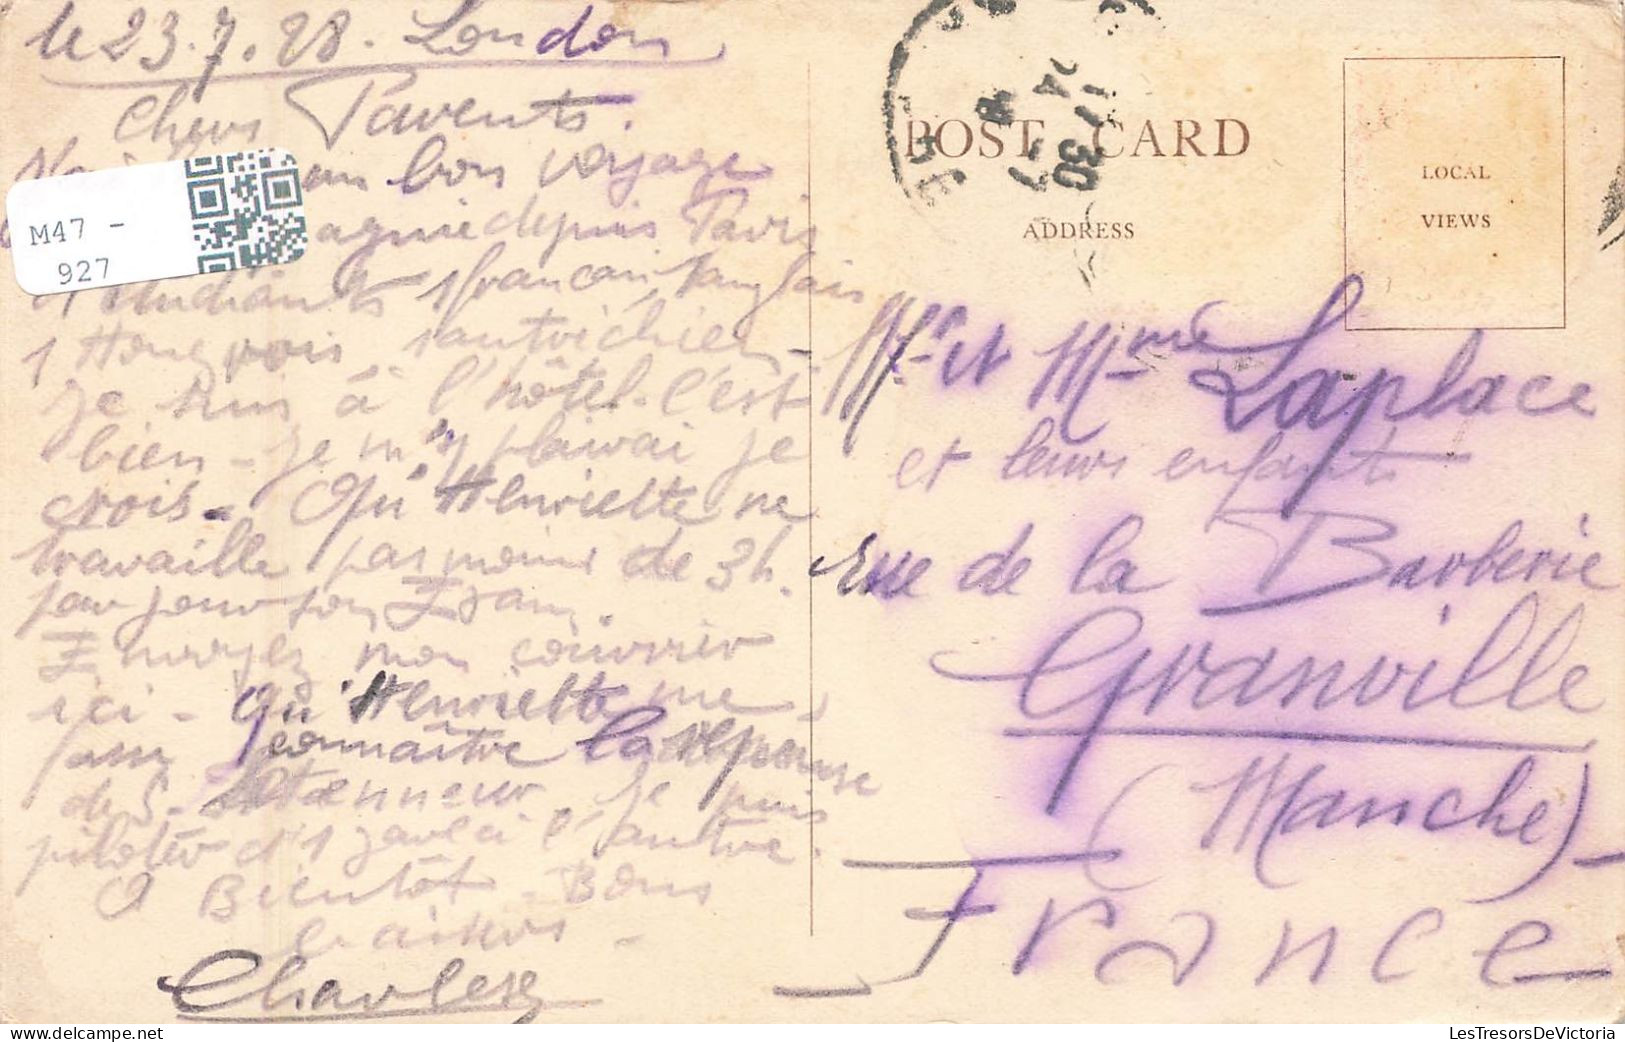 le 23.7.28. London
Chers Parents.
un bon voyage
depuis Paris
étudiants 1 francais 1 anglais
1 Hongrois 1 autrichien -
je suis à l'hôtel. C'est
bien - je m'y plairai je
crois - Qu'Henriette ne
travaille pas moins de 3h.
par jour son Exam.
Envoyez mon courrier
ici - Qu'Henriette me
fasse connaître la réponse
de S. je puis
piloter d'1 jour à l'autre.
A Bientôt. Bons
baisers -
Charles
M47 -
927
17 30
24 - 7
POST CARD
ADDRESS
LOCAL
VIEWS
Mr et Mme Laplace
et leurs enfants
Rue de la Barberie
Granville
(Manche)
France
LesTresorsDeVictoria